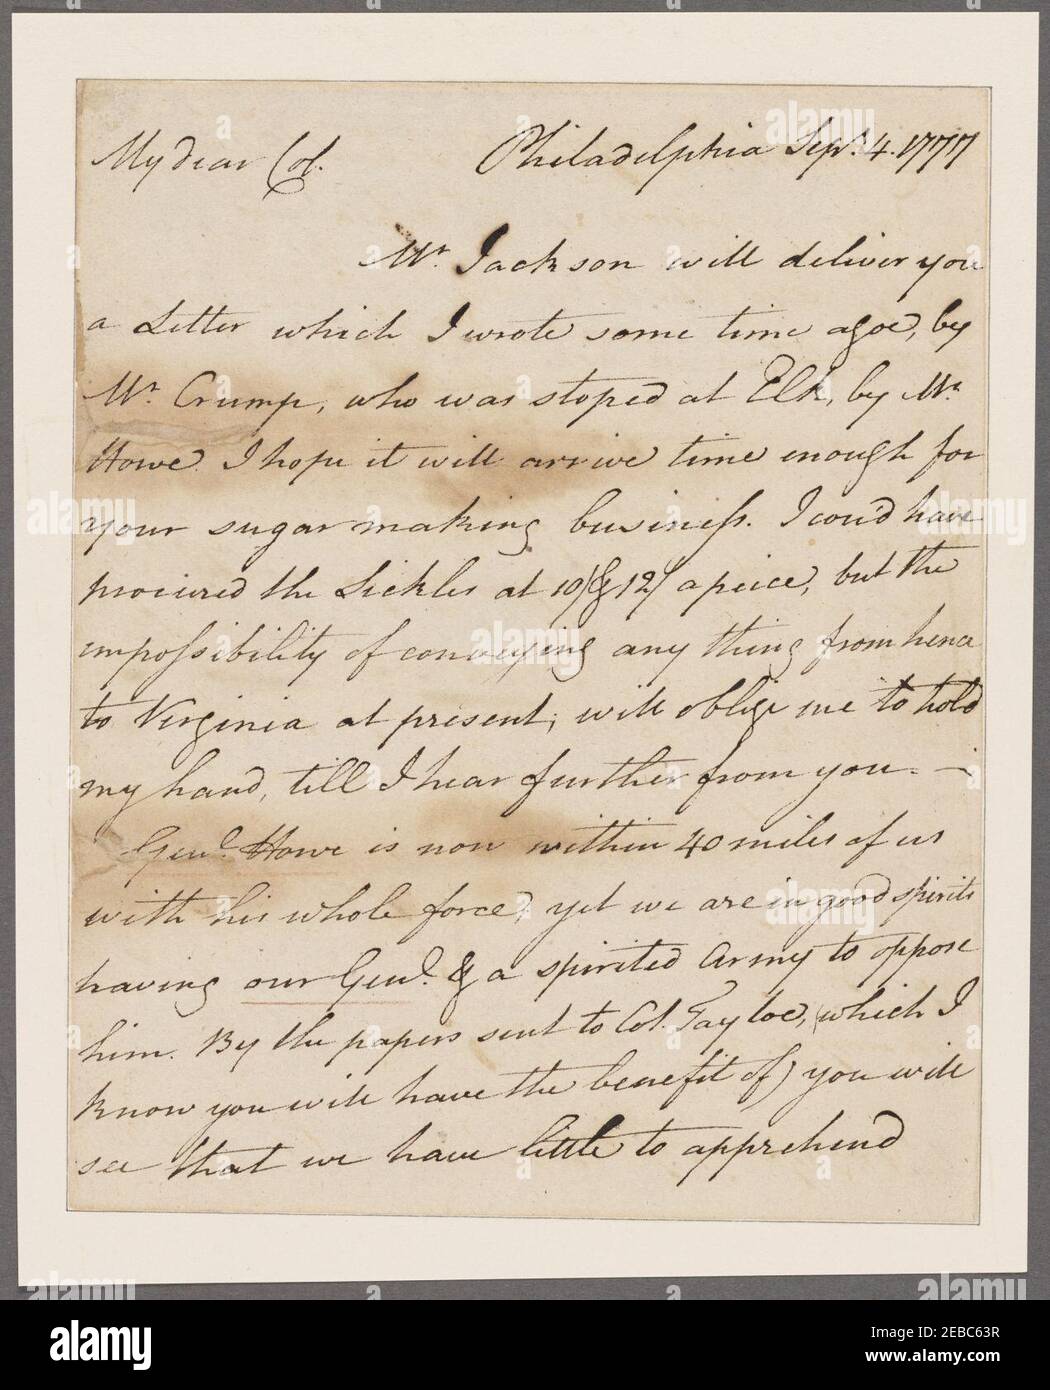 My dear Col. Philadelphia Sepr. 4. 1777
Mr. Jackson will deliver you
a Letter which I wrote some time agoe, by
Mr. Crump, who was stoped at Elk, by Mr.
Howe. I hope it will arrive time enough for
your sugar making business. I cou'd have
procured the Sickles at 10/ & 12/ a peice, but the
impossibility of conveying any thing from hence
to Virginia at present, will oblige me to hold
my hand, till I hear further from you. —
Genl. Howe is now within 40 miles of us
with his whole force, yet we are in good spirits
having our Genl. & a spirited Army to oppose
him. By the papers sent to Col. Tayloe, (which I
know you will have the benefit of) you will
see that we have little to apprehend
alamy
Image ID: 2EBC63R
www.alamy.com